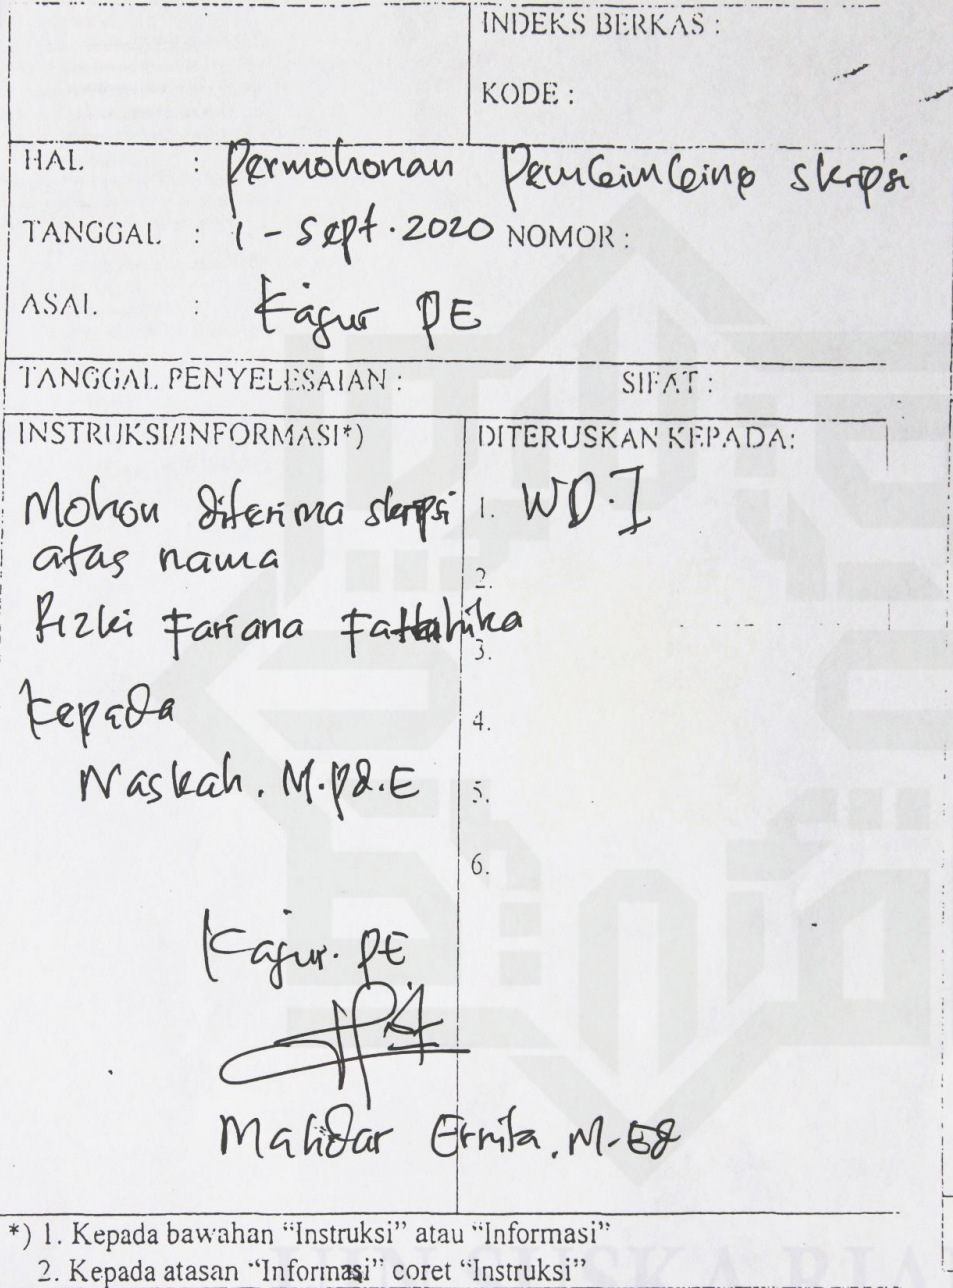 INDEKS BERKAS :
KODE :
HAL : Permohonan Pembimbing skripsi
TANGGAL : 1 - Sept. 2020 NOMOR :
ASAL : Kajur PE
TANGGAL PENYELESAIAN : SIFAT :
INSTRUKSI/INFORMASI*)
Mohon diterima skripsi
atas nama
Rizki Fariana
Kepada
Naskah, M.Pd.E
Kajur. PE
Mahdar Ernita, M.Ed
DITERUSKAN KEPADA:
1. WD.I
2.
3.
4.
5.
6.
*) 1. Kepada bawahan “Instruksi” atau “Informasi”
2. Kepada atasan “Informasi” coret “Instruksi”